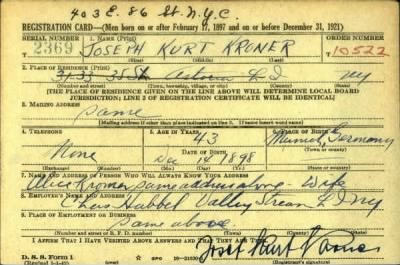 403 E. 86 St. N.Y.C.
REGISTRATION CARD—(Men born on or after February 17, 1897 and on or before December 31, 1921)
SERIAL NUMBER 1. NAME (Print) ORDER NUMBER
S- 2369 JOSEPH KURT KRONER 10522
2. PLACE OF RESIDENCE (Print)
35 St Astoria L I NY
(Number and street) (Town, township, village, or city) (County) (State)
[THE PLACE OF RESIDENCE GIVEN ON THE LINE ABOVE WILL DETERMINE LOCAL BOARD
JURISDICTION; LINE 2 OF REGISTRATION CERTIFICATE WILL BE IDENTICAL]
3. MAILING ADDRESS
Same
[Mailing address if other than place indicated on line 2. If same insert word same]
4. TELEPHONE 5. AGE IN YEARS 6. PLACE OF BIRTH
43 Munich, Germany
None DATE OF BIRTH (Town or county)
Dec 14 1898
(Exchange) (Number) (Mo.) (Day) (Yr.) (State or country)
7. NAME AND ADDRESS OF PERSON WHO WILL ALWAYS KNOW YOUR ADDRESS
Alice Kroner same address above - Wife
8. EMPLOYER'S NAME AND ADDRESS
Chas Hubbel Valley Stream L I NY
9. PLACE OF EMPLOYMENT OR BUSINESS
Same above
(Number and street or R. F. D. number) (Town) (County) (State)
I AFFIRM THAT I HAVE VERIFIED ABOVE ANSWERS AND THAT THEY ARE TRUE.
D. S. S. Form 1 GPO Josef Kurt Kroner